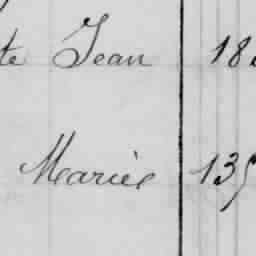 te Jean 18
Marie 135